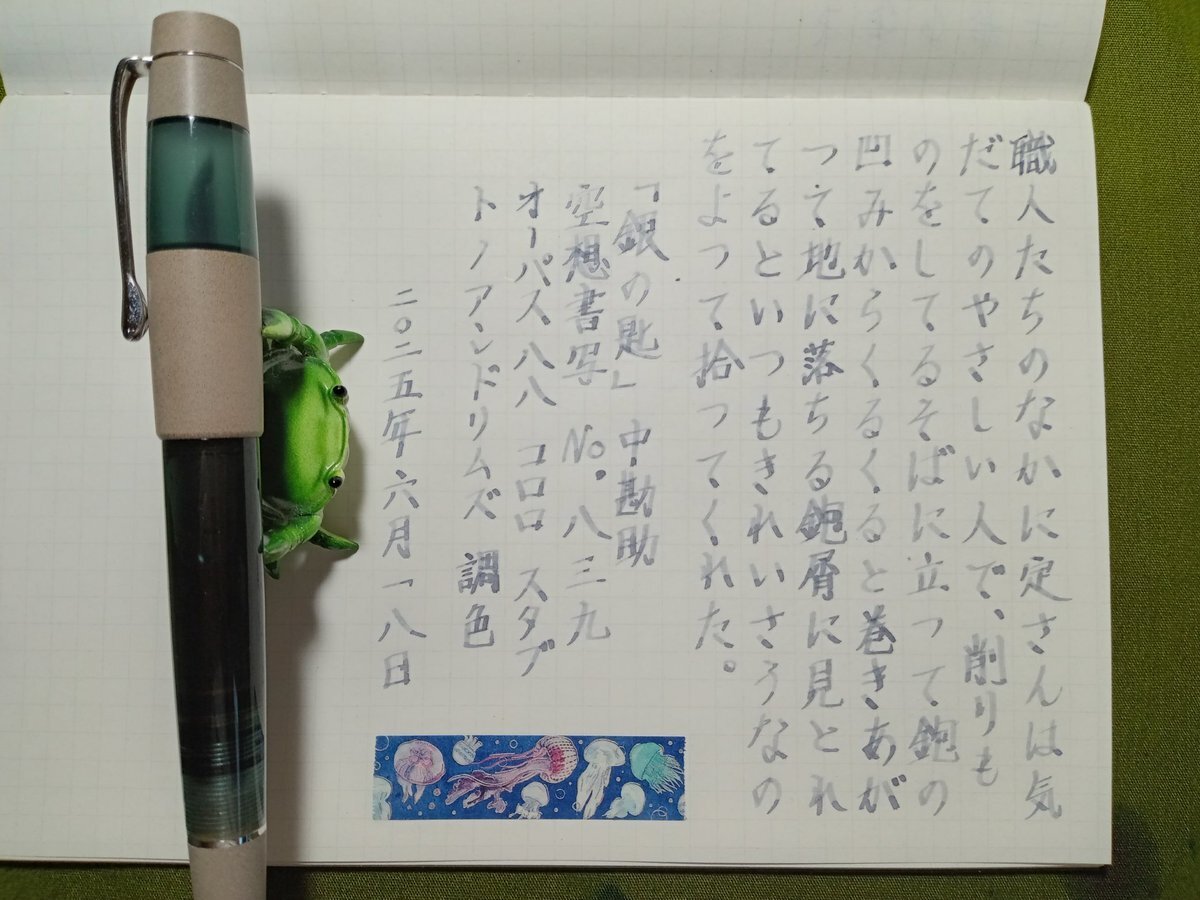 職人たちのなかに定さんは気
だてのやさしい人で、削りも
のをしてるそばに立って鉋の
凹みからくるくると巻きあが
って地に落ちる鉋屑に見とれ
てるといつもきれいさうなの
をよって拾ってくれた。
「銀の匙」 中勘助
空想書写 No. 八三九
オーパス八八 コロロ スタブ
トノアンドリムズ 調色
二〇二五年六月一八日